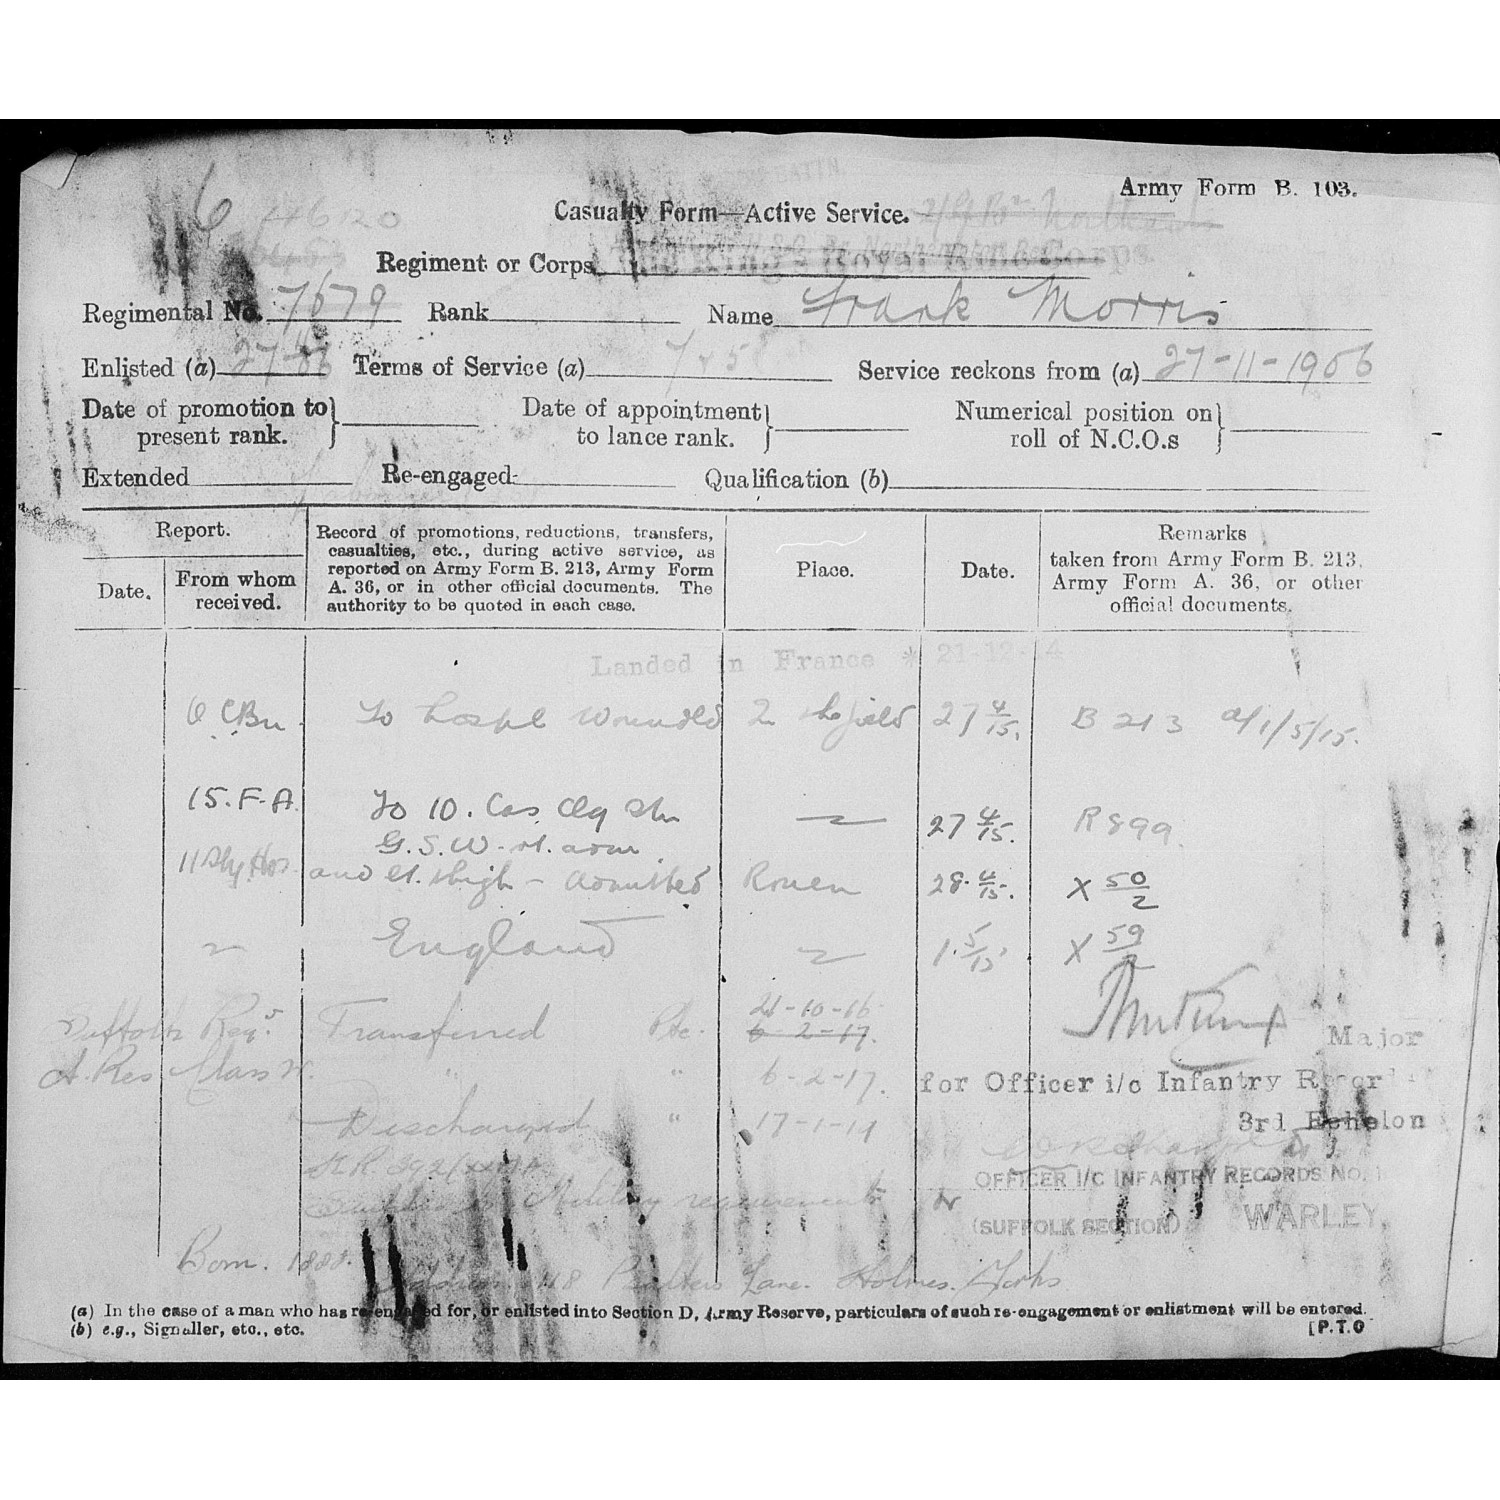 Army Form B. 103.
6 46120
Casualty Form—Active Service.
Regiment or Corps The King's Royal Rifle Corps.
Regimental No. 7579 Rank Name Frank Morris
Enlisted (a) Terms of Service (a) 7 & 5 Service reckons from (a) 27-11-1906
Date of promotion to present rank. Date of appointment to lance rank. Numerical position on roll of N.C.O.s
Extended Re-engaged Qualification (b)
Report. Record of promotions, reductions, transfers, casualties, etc., during active service, as reported on Army Form B. 213, Army Form A. 36, or in other official documents. The authority to be quoted in each case. Place. Date. Remarks taken from Army Form B. 213, Army Form A. 36, or other official documents.
Date. From whom received.
Landed in France * 21-12-14
O C Bn. To hospl wounded In the field 27 4/15. B 213 d/1/5/15.
15. F. A. To 10. Cas Clg Stn 27 4/15. R 899.
G.S.W. rt. arm
11 Sty Hos. and lt. thigh - admitted Rouen 28. 4/15. X 50/2
England 1. 5/15 X 59
Suffolk Regt Transferred Pte. 21-10-16
6-2-17.
Major
A. Res Class W. " " 6-2-17.
for Officer i/c Infantry Record
Discharged " 17-1-19
3rd Echelon
K.R. 392
Military requirements
OFFICER I/C INFANTRY RECORDS NO. 1
(SUFFOLK SECTION) WARLEY.
Born. 1888.
Address 48 Lane. Holmes. Yorks
(a) In the case of a man who has re-engaged for, or enlisted into Section D, Army Reserve, particulars of such re-engagement or enlistment will be entered.
(b) e.g., Signaller, etc., etc. [P.T.O